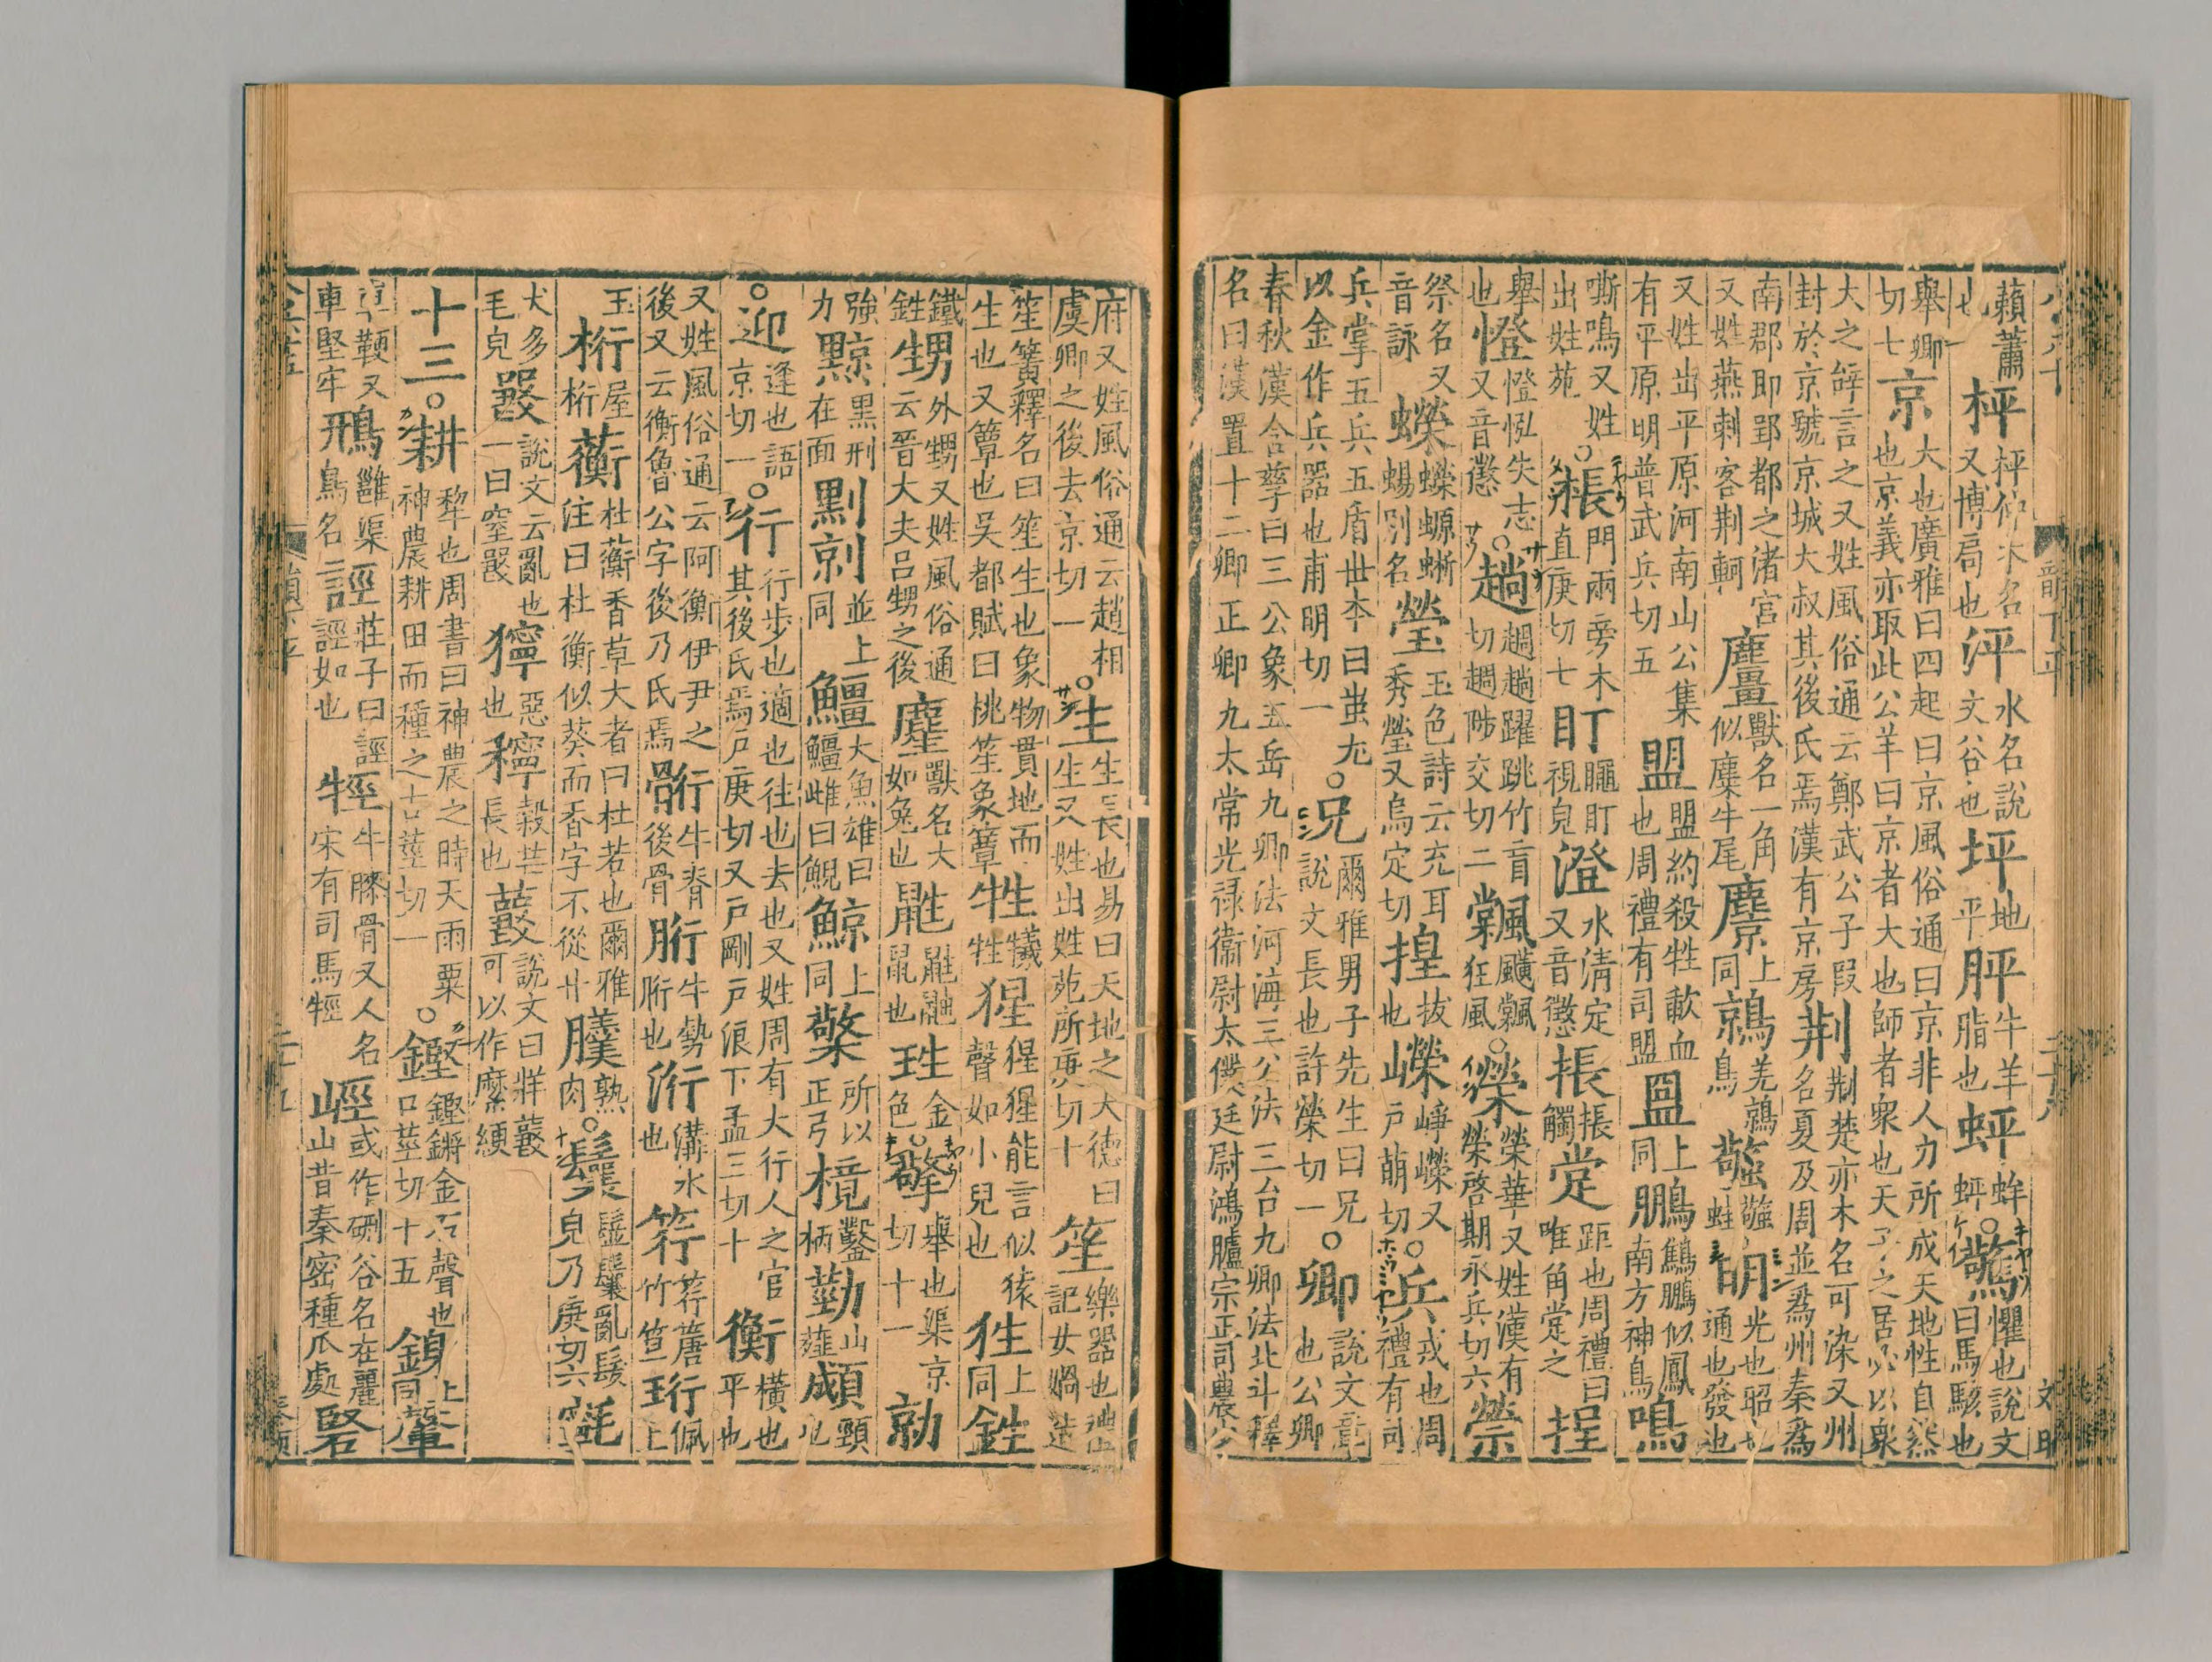 蘋蕭也枰枰仲木名又博局也泙水名說文谷也坪地平胓牛羊脂也蚲○驚懼也說文曰馬駭也
舉卿切七京大也廣雅曰四起曰京風俗通曰京非人力所成天地性自然也京義亦取此公羊曰京者大也師者衆也天子之居必以衆
大之辝言之又姓風俗通云鄭武公子段封於京號京城大叔其後氏焉漢有京房荆荆楚亦木名可染又州名夏及周並爲州秦爲
南郡即郢都之渚宮又姓燕刺客荆軻麠獸名一角似麋牛尾麖上同鶁羌鶁鳥䗔䗔蛙明光也昭也通也發也
又姓出平原河南山公集有平原明普武兵切五盟盟約殺牲歃血也周禮有司盟上同鵬鷦鵬似鳳南方神鳥鳴
嘶鳴又姓出姓苑○棖門兩旁木直庚切七盯䁤盯視皃澄水清定又音懲掁掁觸牚距也周禮曰唯角牚之挰
舉也憕憕㤚失志又音懲○趟趟趟躍跳竹盲切趙陟交切二飃颺狂風○榮榮華又姓漢有榮啓期永兵切六禜
祭名又音詠蠑蠑螈蜥蜴別名瑩玉色詩云充耳秀瑩又烏定切㨕拔也嶸崢嶸又戶萌切○兵戎也周禮有司
兵掌五兵五盾世本曰蚩尤以金作兵兵器也甫明切一○兄爾雅男子先生曰兄說文長也許榮切一○卿說文章也公卿
春秋漢含孳曰三公象五岳九卿法河海三公法三台九卿法北斗釋名曰漢置十二卿正卿九太常光禄衞尉太僕廷尉鴻臚宗正司農少
府又姓風俗通云趙相虞卿之後去京切一○生生長也易曰天地之大德曰生又姓出姓苑所庚切十笙樂器也禮記女媧造
笙簧釋名曰笙生也象物貫地而生也又簟也吳都賦曰桃笙象簟牲犧牲猩猩猩能言似猿聲如小兒也狌上同鉎
鐵鉎甥外甥又姓風俗通云晉大夫呂甥之後麈獸名大如兔也鼪鼪鼬鼠也珄金色○擎舉也渠京切十一勍
強力黥黑刑在面剠剠並上同䲔大魚雄曰䲔雌曰鯢鯨上同檠所以正弓橄鑿柄葝山薤䫆頸也
○迎逢也語京切一○行行步也適也往也去也又姓周有大行人之官其後氏焉戶庚切又戶剛戶浪下孟三切十衡橫也平也
又姓風俗通云阿衡伊尹之後又云衡魯公字後乃氏焉䯒牛脊後骨胻牛勢胻也洐溝水也筕筕篖竹笪珩佩上
玉桁屋桁蘅杜蘅香草大者曰杜若也爾雅注曰杜衡似葵而香字不從艹䐥熟肉○鬤䰐鬤亂髮皃乃庚切六㲌
犬多毛皃㗲說文云亂也一曰窒㗲獰惡也䆨穀芒長也䕼說文曰牂䕼可以作縻綆
十三○耕犂也周書曰神農之時天雨粟神農耕田而種之古莖切一○鏗鏗鏘金石聲也口莖切十五鍞上同䡰
車堅牢䲼鸃渠鳥名誙莊子曰誙誙如也牼牛膝骨又人名宋有司馬牼𡷨或作硎谷名在麗山昔秦密種瓜處硻